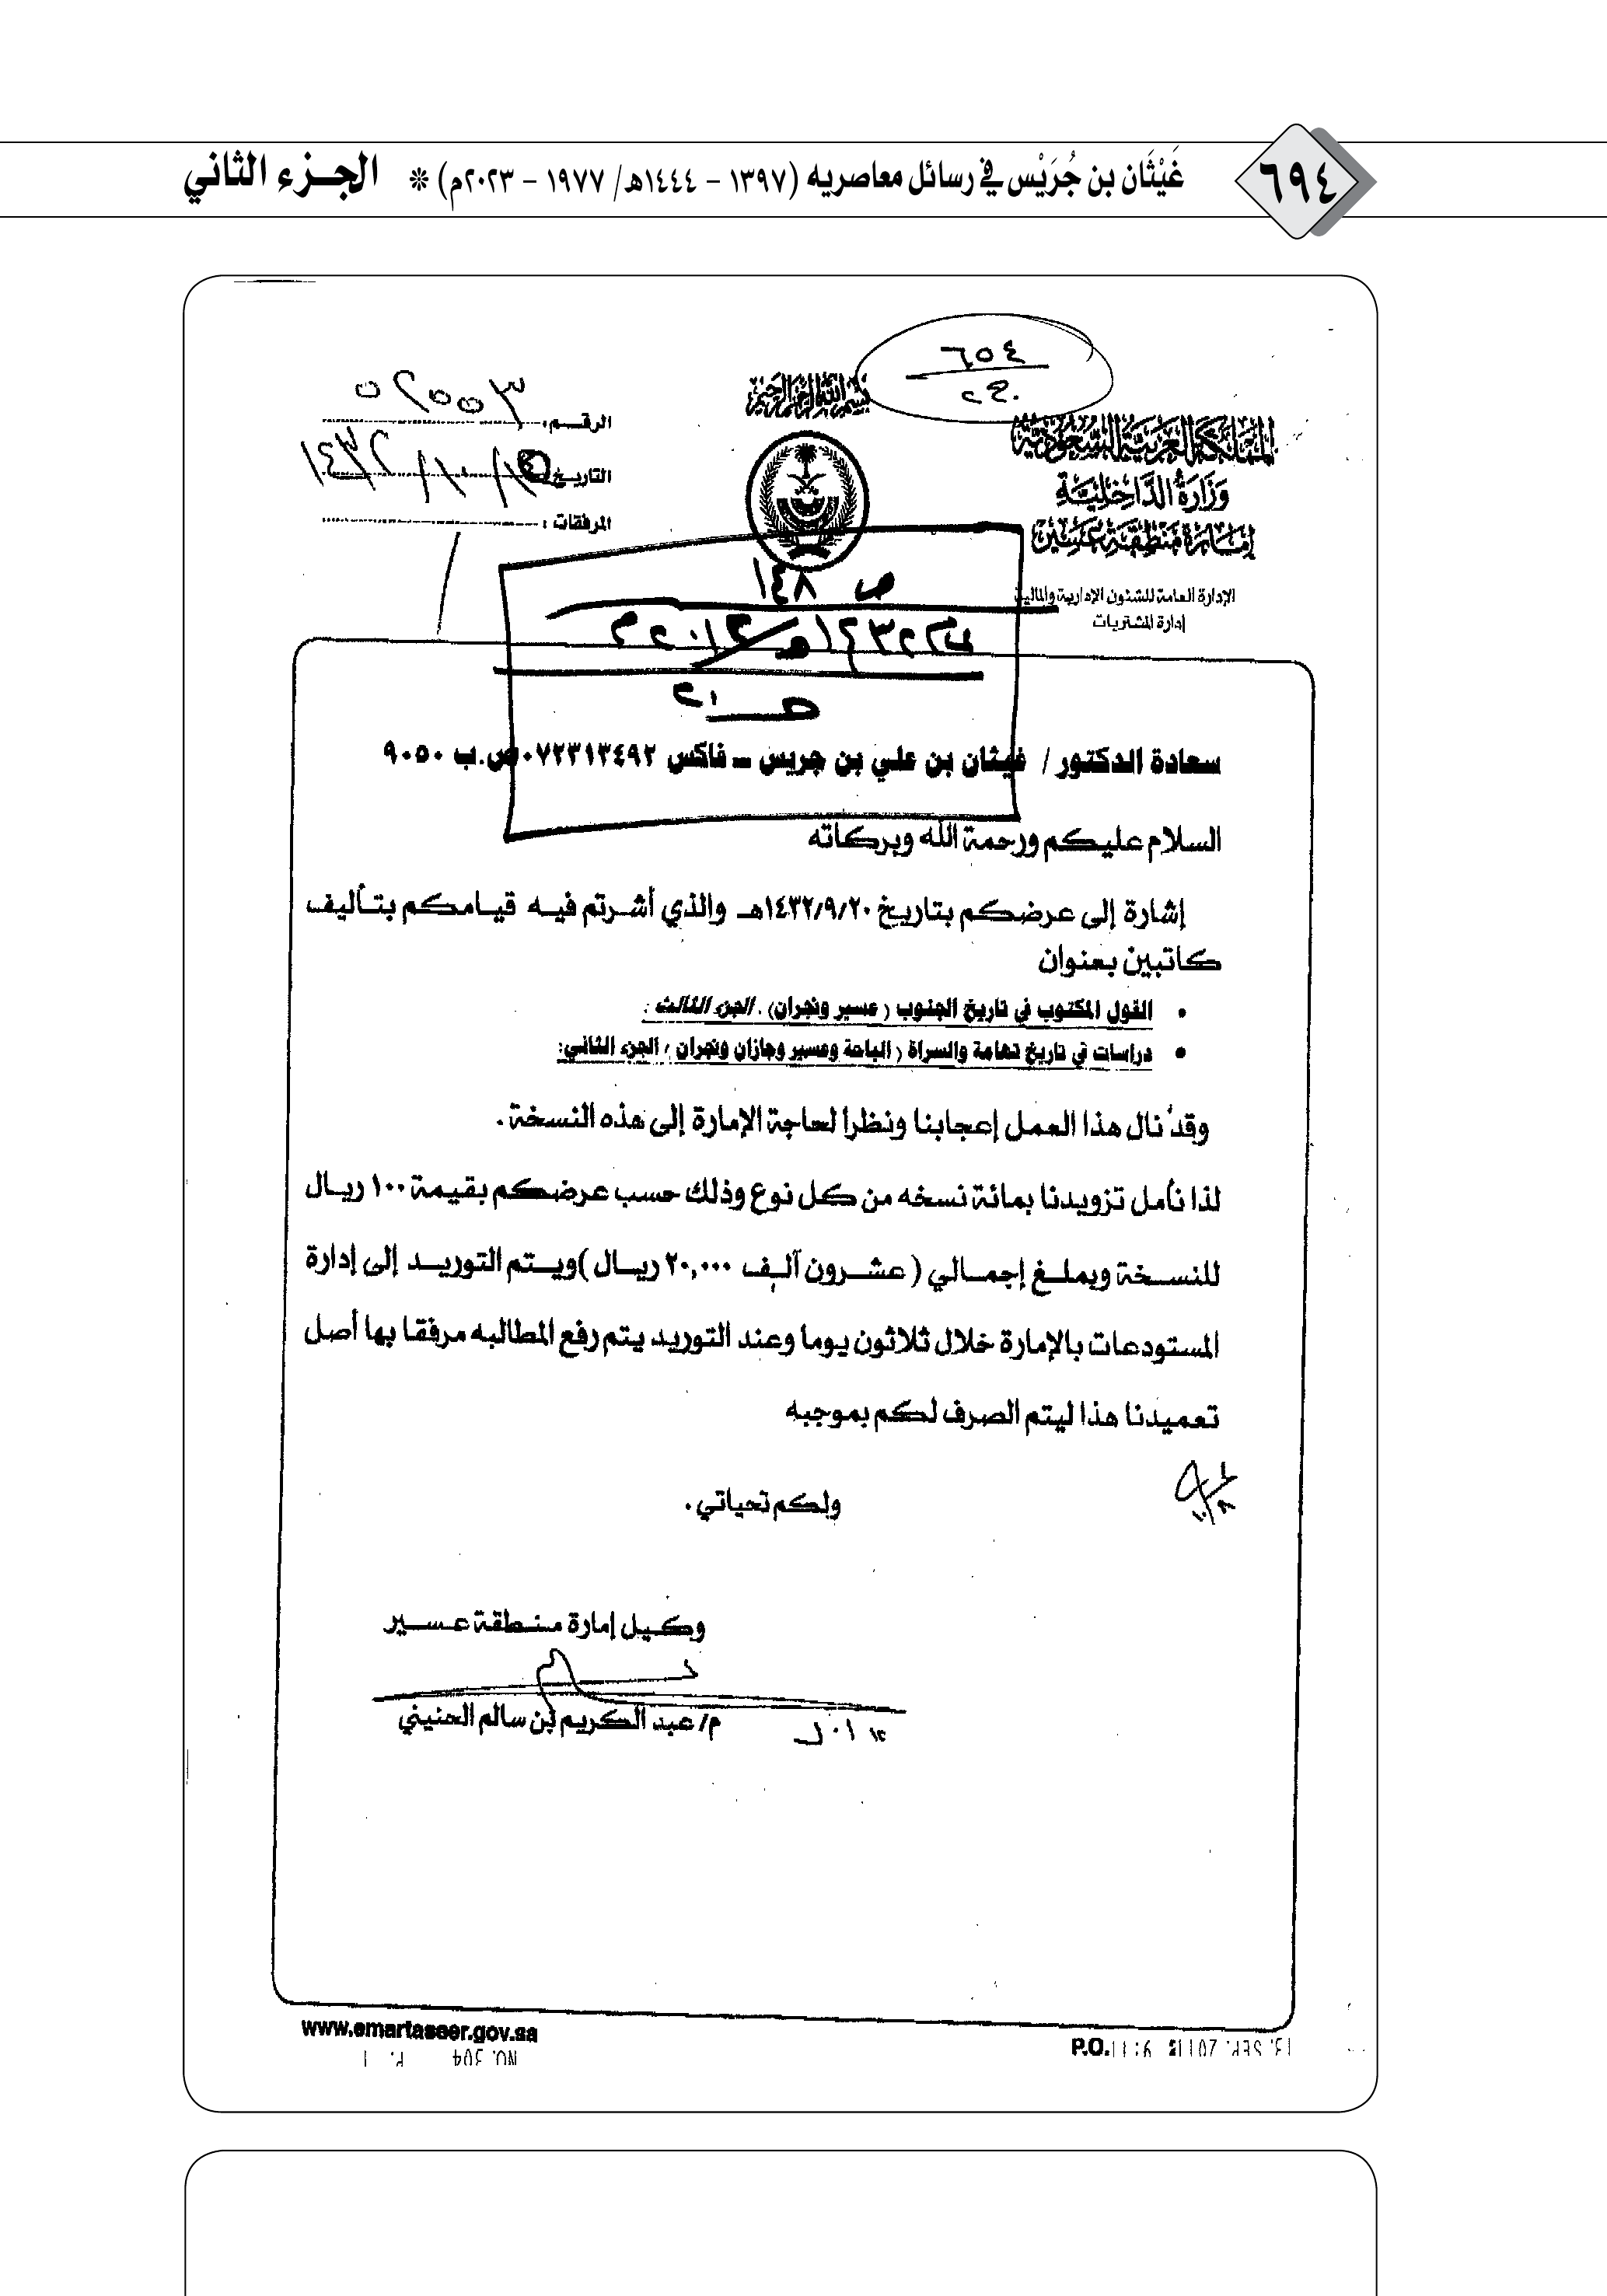 ٦٩٤
غَيْثَان بن جُرَيْس في رسائل معاصريه (١٣٩٧ - ١٤٤٤هـ/ ١٩٧٧ - ٢٠٢٣م) * الجزء الثاني
٦٥٤
بسم الله الرحمن الرحيم
المملكة العربية السعودية
وزارة الداخلية
إمارة منطقة عسير
الإدارة العامة للشئون الإدارية والمالية
إدارة المشتريات
الرقم :
التاريخ
المرفقات :
ص ١٤٨
سعادة الدكتور / غيثان بن علي بن جريس – فاكس ٠٧٢٣١٣٤٩٢ ص.ب ٩٠٥٠
السلام عليكم ورحمة الله وبركاته
إشارة إلى عرضكم بتاريخ ١٤٣٢/٩/٢٠هـ والذي أشرتم فيه قيامكم بتأليف
كاتبين بعنوان
• القول المكتوب في تاريخ الجنوب ( عسير ونجران) . الجزء الثالث :
• دراسات في تاريخ تهامة والسراة ( الباحة وعسير وجازان ونجران ) الجزء الثاني:
وقد نال هذا العمل إعجابنا ونظرا لحاجة الإمارة إلى هذه النسخة .
لذا نأمل تزويدنا بمائة نسخه من كل نوع وذلك حسب عرضكم بقيمة ١٠٠ ريال
للنسخة وبملغ إجمالي ( عشرون آلف ٢٠,٠٠٠ ريال )ويتم التوريد إلى إدارة
المستودعات بالإمارة خلال ثلاثون يوما وعند التوريد يتم رفع المطالبه مرفقا بها أصل
تعميدنا هذا ليتم الصرف لكم بموجبه
ولكم تحياتي .
وكيل إمارة منطقة عسير
م/ عبد الكريم بن سالم الحنيني
www.emartaseer.gov.sa
P.O.
NO. 304 P. 1